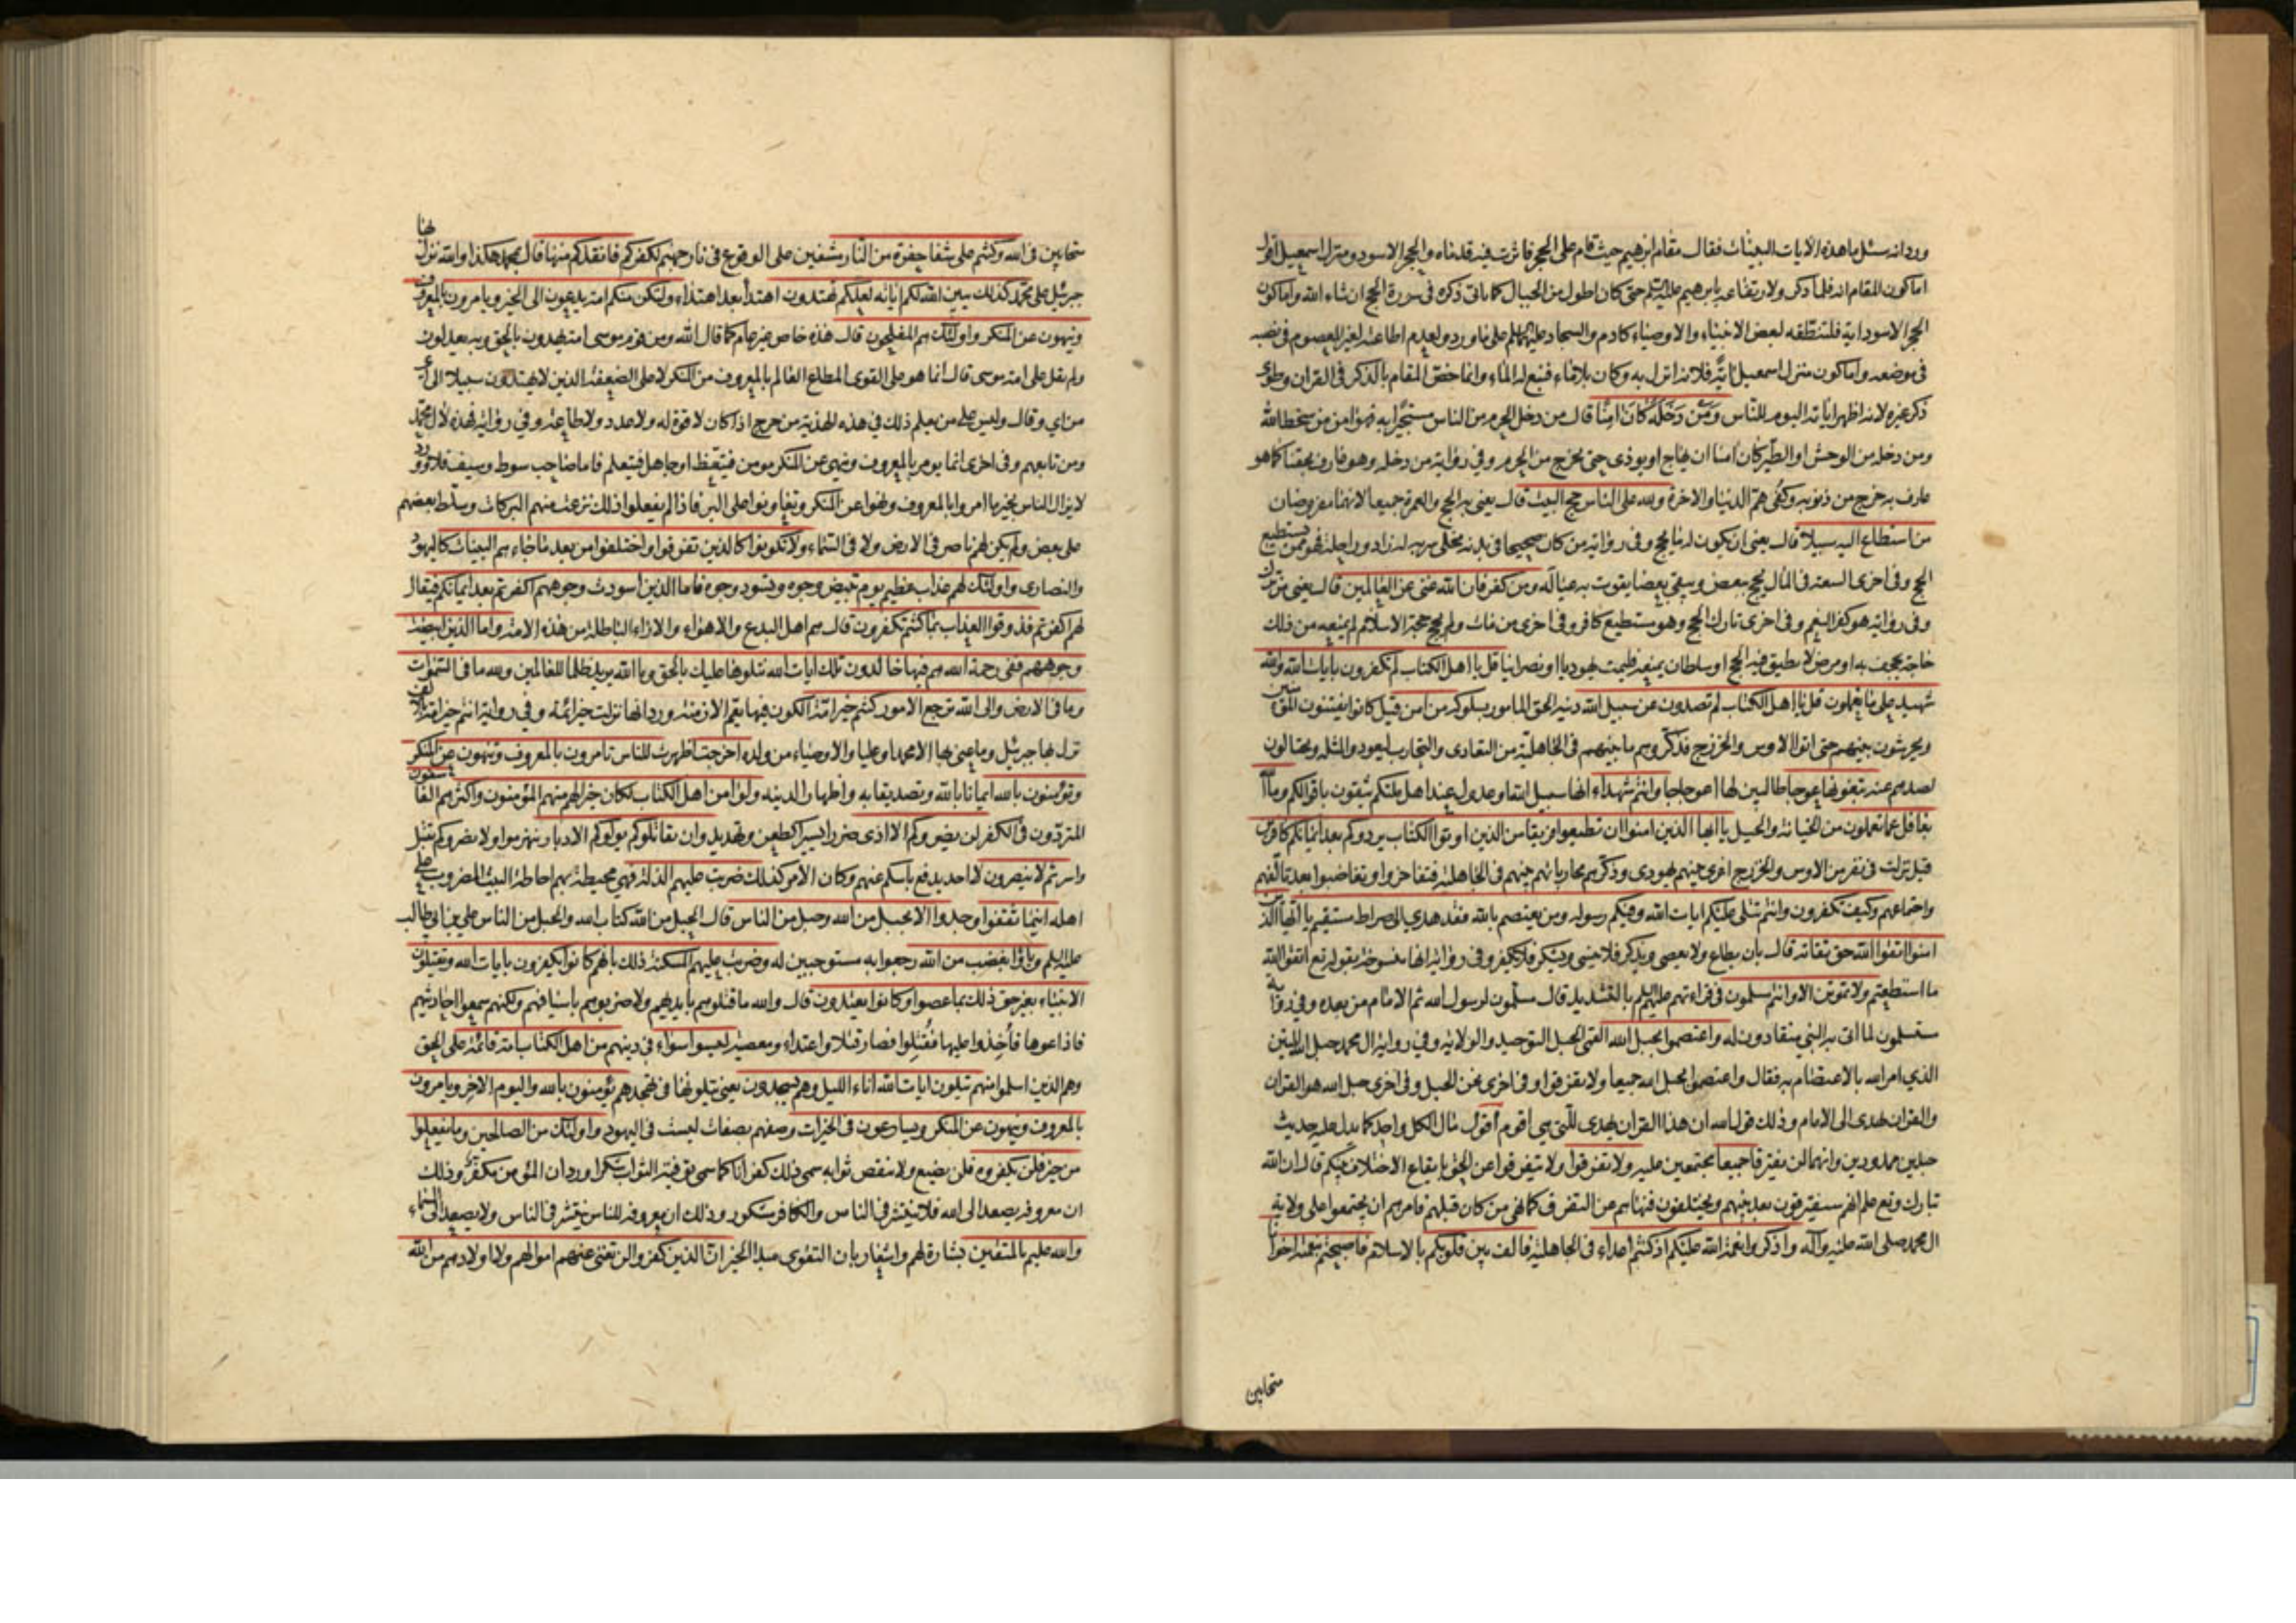 ورد انه سئل ما هذه الايات البينات فقال مقام ابرهيم حيث قام على الحجر فاثرت فيه قدماه والحجر الاسود ومنزل اسمعيل اقول
اما كون المقام اية فلما ذكر ولارتفاعه بابرهيم عليه السلم حتى كان اطول من الجبال كما ياتى ذكره فى سورة الحج ان شاء الله واما كون
الحجر الاسود اية فلتنطقه لبعض الانبياء والاوصياء كادم والسجاد عليهما السلم على ما ورد ولعدم اطاعته لغير المعصوم فى نصبه
فى موضعه واما كون منزل اسمعيل اية فلانه انزل به وكان بلا ماء فنبع له الماء وانما خص المقام بالذكر فى القران وطوى
ذكر غيره لانه اظهر اياته اليوم للناس وَمَنْ دَخَلَهُ كَانَ امِنًا قال من دخل الحرم من الناس مستجيرا به فهو امن من سخط الله
ومن دخله من الوحش او الطير كان امنا ان يهاج او يوذى حتى يخرج من الحرم وفي رواية من دخله وهو عارف بحقنا كما هو
عارف به خرج من ذنوبه وكفى هم الدنيا والاخرة ولله على الناس حج البيت قال يعنى به الحج والعمرة جميعا لانهما مفروضان
من استطاع اليه سبيلا قال يعنى ان يكون له ما يحج وفى رواية من كان صحيحا فى بدنه مخلى سربه له زاد وراحلة فهو ممن يستطيع
الحج وفى اخرى السعة فى المال يحج ببعض ويبقى بعضا يقوت به عياله ومن كفر فان الله غنى عن العالمين قال يعنى من ترك
وفى رواية هو كفر النعم وفى اخرى تارك الحج وهو مستطيع كافر وفى اخرى من مات ولم يحج حجة الاسلام لم يمنعه من ذلك
حاجة تجحف به او مرض لا يطيق فيه الحج او سلطان يمنعه فليمت يهوديا او نصرانيا قل يا اهل الكتاب لم تكفرون بايات الله والله
شهيد على ما تعملون قل يا اهل الكتاب لم تصدون عن سبيل الله دينه الحق المامور بسلوكه من امن قيل كانوا يفتنون المؤمنين
ويحرشون بينهم حتى اتوا الاوس والخزرج فذكروهم ما بينهم فى الجاهلية من التعادى والتحارب ليعودوا لمثله ويحتالون
لصدهم عنه تبغونها عوجا طالبين لها اعوجاجا وانتم شهداء انها سبيل الله او عدول عند اهل ملتكم يثقون باقوالكم وما الله
بغافل عما تعملون من الخيانة والحيل يا ايها الذين امنوا ان تطيعوا فريقا من الذين اوتوا الكتاب يردوكم بعد ايمانكم كافرين
قيل نزلت فى نفر من الاوس والخزرج اغرى بينهم يهودى وذكرهم محارباتهم بينهم فى الجاهلية فتفاخروا وتغاضبوا بعد تالفهم
واجتماعهم وكيف تكفرون وانتم تتلى عليكم ايات الله وفيكم رسوله ومن يعتصم بالله فقد هدي الى صراط مستقيم يا ايها الذين
امنوا اتقوا الله حق تقاته قال بان يطاع ولا يعصى ويذكر فلا ينسى ويشكر فلا يكفر وفى رواية انها منسوخة بقوله تع اتقوا الله
ما استطعتم ولا تموتن الا وانتم مسلمون فى قراءتهم عليهم السلم بالتشديد قال مسلّمون لرسول الله ثم الامام من بعده وفى رواية
مستسلمون لما اتى به النبي منقادون له واعتصموا بحبل الله القمى الحبل التوحيد والولاية وفى رواية ال محمد حبل الله المتين
الذي امر الله بالاعتصام به فقال واعتصموا بحبل الله جميعا ولا تفرقوا وفى اخرى نحن الحبل وفى اخرى حبل الله هو القران
والقران يهدى الى الامام وذلك قول الله ان هذا القران يهدى للتى هى اقوم اقول مال الكل واحد كما يدل عليه حديث
حبلين ممدودين وانهما لن يفترقا جميعا مجتمعين عليه ولا تفرقوا ولا تتفرقوا عن الحق بايقاع الاختلاف بينكم قال ان الله
تبارك وتع علم انهم سيفترقون بعد نبيهم ويختلفون فنهاهم عن التفرق كما نهى من كان قبلهم فامرهم ان يجتمعوا على ولاية
ال محمد صلى الله عليه وآله واذكروا نعمة الله عليكم اذ كنتم اعداء فى الجاهلية فالف بين قلوبكم بالاسلام فاصبحتم بنعمته اخوانا
متحابين
متحابين فى الله وكنتم على شفا حفرة من النار مشفين على الوقوع فى نار جهنم لكفركم فانقذكم منها قال بمحمد هكذا والله نزل بها
جبرئيل على محمد كذلك يبين الله لكم اياته لعلكم تهتدون اهتداء بعد اهتداء ولتكن منكم امة يدعون الى الخير ويامرون بالمعروف
وينهون عن المنكر واولئك هم المفلحون قال هذه خاص غير عام كما قال الله ومن قوم موسى امة يهدون بالحق وبه يعدلون
ولم يقل على امة موسى قال انما هو على القوى المطاع العالم بالمعروف من المنكر لا على الضعفة الذين لا يهتدون سبيلا الى اى
من اى وقال وليس على من يعلم ذلك فى هذه الهدنة من حرج اذا كان لا قوة له ولا عدد ولا طاعة وفى رواية فهذه لال محمد
ومن تابعهم وفى اخرى انما يومر بالمعروف وينهى عن المنكر مومن فيتعظ او جاهل فيتعلم فاما صاحب سوط وسيف فلا وورد
لا يزال الناس بخير ما امروا بالمعروف ونهوا عن المنكر وتعاونوا على البر فاذا لم يفعلوا ذلك نزعت منهم البركات وسلط بعضهم
على بعض ولم يكن لهم ناصر فى الارض ولا فى السماء ولا تكونوا كالذين تفرقوا واختلفوا من بعد ما جاءهم البينات كاليهود
والنصارى واولئك لهم عذاب عظيم يوم تبيض وجوه وتسود وجوه فاما الذين اسودت وجوههم اكفرتم بعد ايمانكم فيقال
لهم اكفرتم فذوقوا العذاب بما كنتم تكفرون قال هم اهل البدع والاهواء والاراء الباطلة من هذه الامة واما الذين ابيضت
وجوههم ففى رحمة الله هم فيها خالدون تلك ايات الله نتلوها عليك بالحق وما الله يريد ظلما للعالمين ولله ما فى السموات
وما فى الارض والى الله ترجع الامور كنتم خير امة الكون فيها يعم الازمنة ورد انها نزلت خير ائمة وفى رواية انتم خير امة بالالف
نزل بها جبرئيل وما عنى بها الا محمدا وعليا والاوصياء من ولده اخرجت اظهرت للناس تامرون بالمعروف وتنهون عن المنكر
وتؤمنون بالله ايمانا بالله وتصديقا به واظهارا لدينه ولو امن اهل الكتاب لكان خيرا لهم منهم المؤمنون واكثرهم الفاسقون
المتردون فى الكفر لن يضروكم الا اذى ضررا يسيرا كطعن وتهديد وان يقاتلوكم يولوكم الادبار ينهزموا ولا يضروكم بقتل
واسر ثم لا ينصرون لا احد يدفع باسكم عنهم وكان الامر كذلك ضربت عليهم الذلة فهى محيطة بهم احاطة البيت المضروب على
اهله اينما ثقفوا وجدوا الا بحبل من الله وحبل من الناس قال الحبل من الله كتاب الله والحبل من الناس على بن ابى طالب
عليه السلم وباؤا بغضب من الله رجعوا به مستوجبين له وضربت عليهم المسكنة ذلك بانهم كانوا يكفرون بايات الله ويقتلون
الانبياء بغير حق ذلك بما عصوا وكانوا يعتدون قال والله ما قتلوهم بايديهم ولا ضربوهم باسيافهم ولكنهم سمعوا احاديثهم
فاذاعوها فأخذوا عليها فقُتلوا فصار قتلا واعتداء ومعصية ليسوا سواء فى دينهم من اهل الكتاب امة قائمة على الحق
وهم الذين اسلموا منهم يتلون ايات الله اناء الليل وهم يسجدون يعنى يتلونها فى تهجدهم يؤمنون بالله واليوم الاخر ويامرون
بالمعروف وينهون عن المنكر ويسارعون فى الخيرات وصفهم بصفات ليست فى اليهود واولئك من الصالحين وما يفعلوا
من خير فلن يكفروه فلن يضيع ولا ينقص ثوابه سمى ذلك كفرانا كما سمى توفية الثواب شكرا ورد ان المؤمن مكفر وذلك
ان معروفه يصعد الى الله فلا ينتشر فى الناس والكافر مشكور وذلك ان معروفه للناس ينتشر فى الناس ولا يصعد الى السماء
والله عليم بالمتقين بشارة لهم واشعار بان التقوى مبدا الخير ان الذين كفروا لن تغنى عنهم اموالهم ولا اولادهم من الله